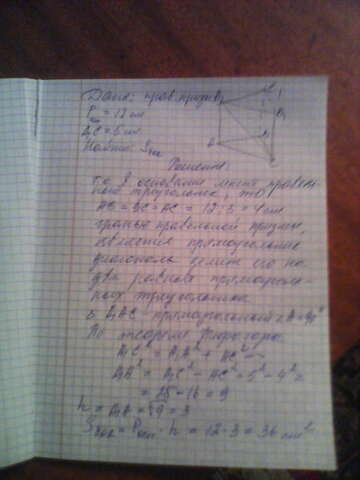 Дано: прав. призма
Pосн = 12 см
A₁C = 5 см
Найти: Sбок
Решение:
т.к. в основании лежит правиль-
ный треугольник, то
AB = BC = AC = 12 : 3 = 4 см
гранью правильной призмы,
является прямоугольник
диагональ делит его на
два равных прямоуголь-
ных треугольника
A₁AC - прямоугольный ∠A=90°
По теореме Пифагора
A₁C² = A₁A² + AC²
AA₁² = A₁C² - AC² = 5² - 4² =
= 25 - 16 = 9
h = A₁A = √9 = 3
Sбок = Pосн · h = 12 · 3 = 36 см²